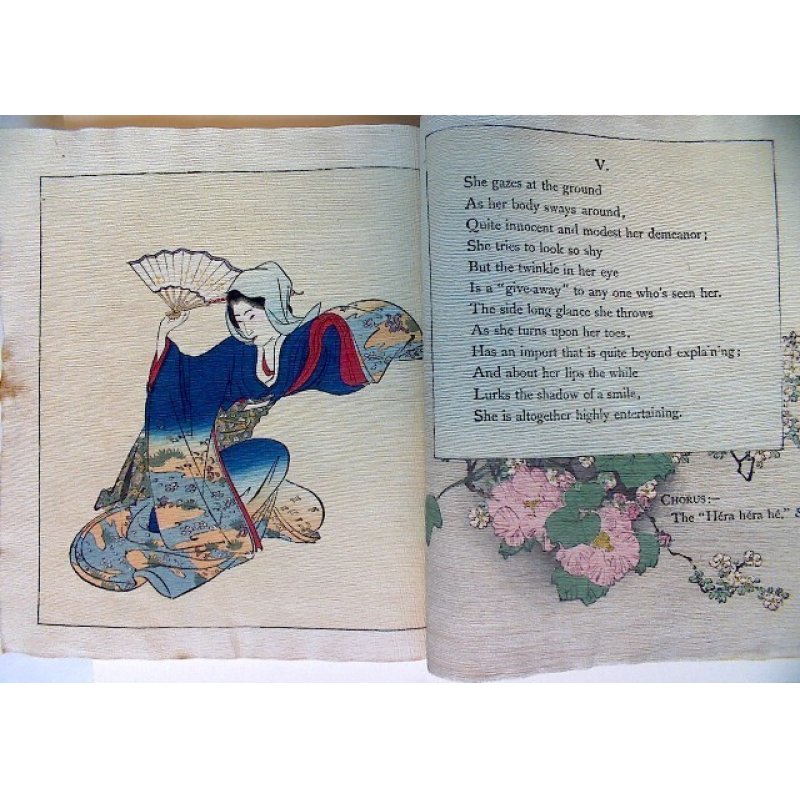 V.
She gazes at the ground
As her body sways around,
Quite innocent and modest her demeanor;
She tries to look so shy
But the twinkle in her eye
Is a "give-away" to any one who's seen her.
The side long glance she throws
As she turns upon her toes,
Has an import that is quite beyond explaining;
And about her lips the while
Lurks the shadow of a smile,
She is altogether highly entertaining.
CHORUS:—
The "Héra héra hé," &